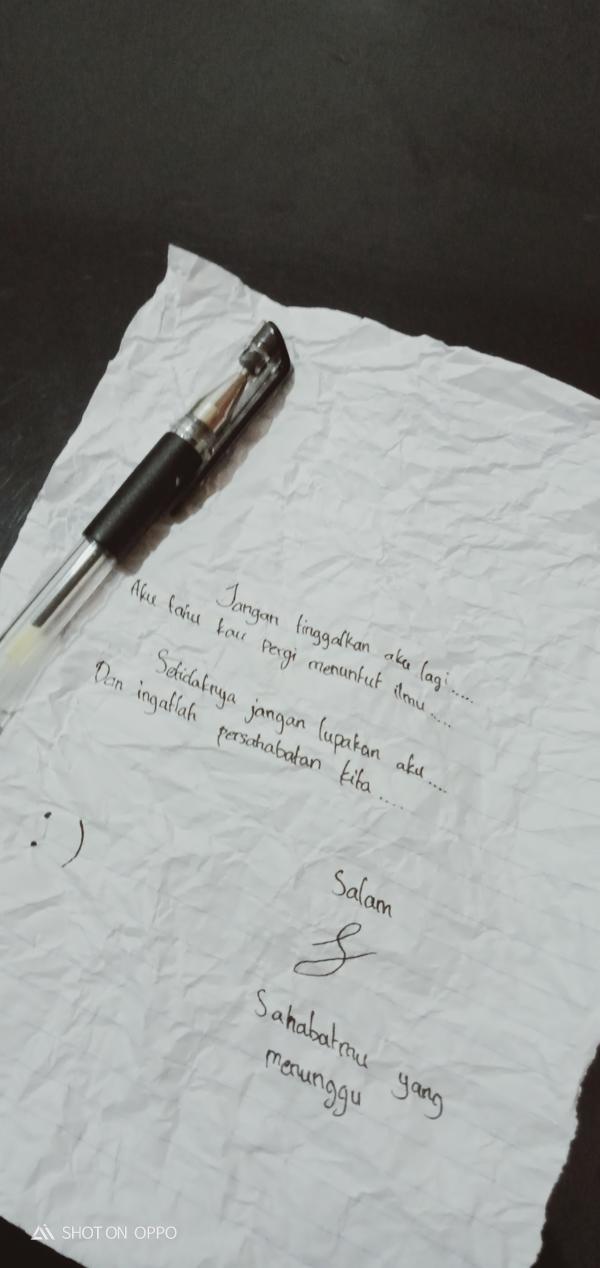 Jangan tinggalkan aku lagi.....
Aku tahu kau pergi menuntut ilmu.....
Setidaknya jangan lupakan aku....
Dan ingatlah persahabatan kita.....
:)
Salam
Sahabatmu yang
menunggu
SHOT ON OPPO